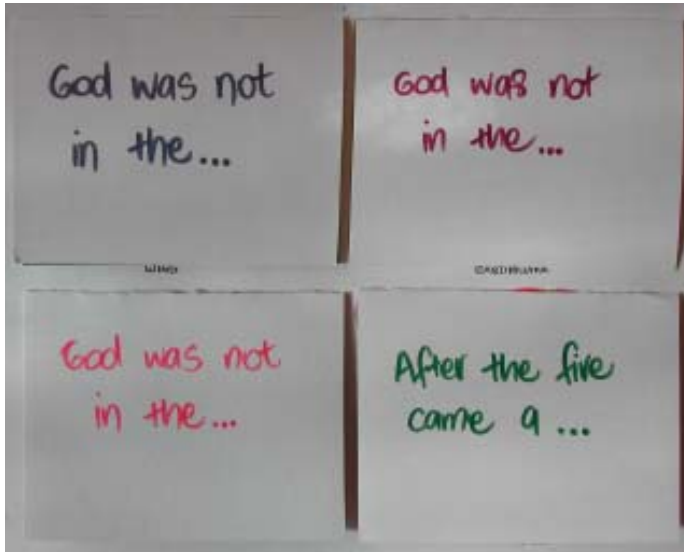 God was not
in the...
God was not
in the...
WIND
EARTHQUAKE
God was not
in the...
After the fire
came a ...